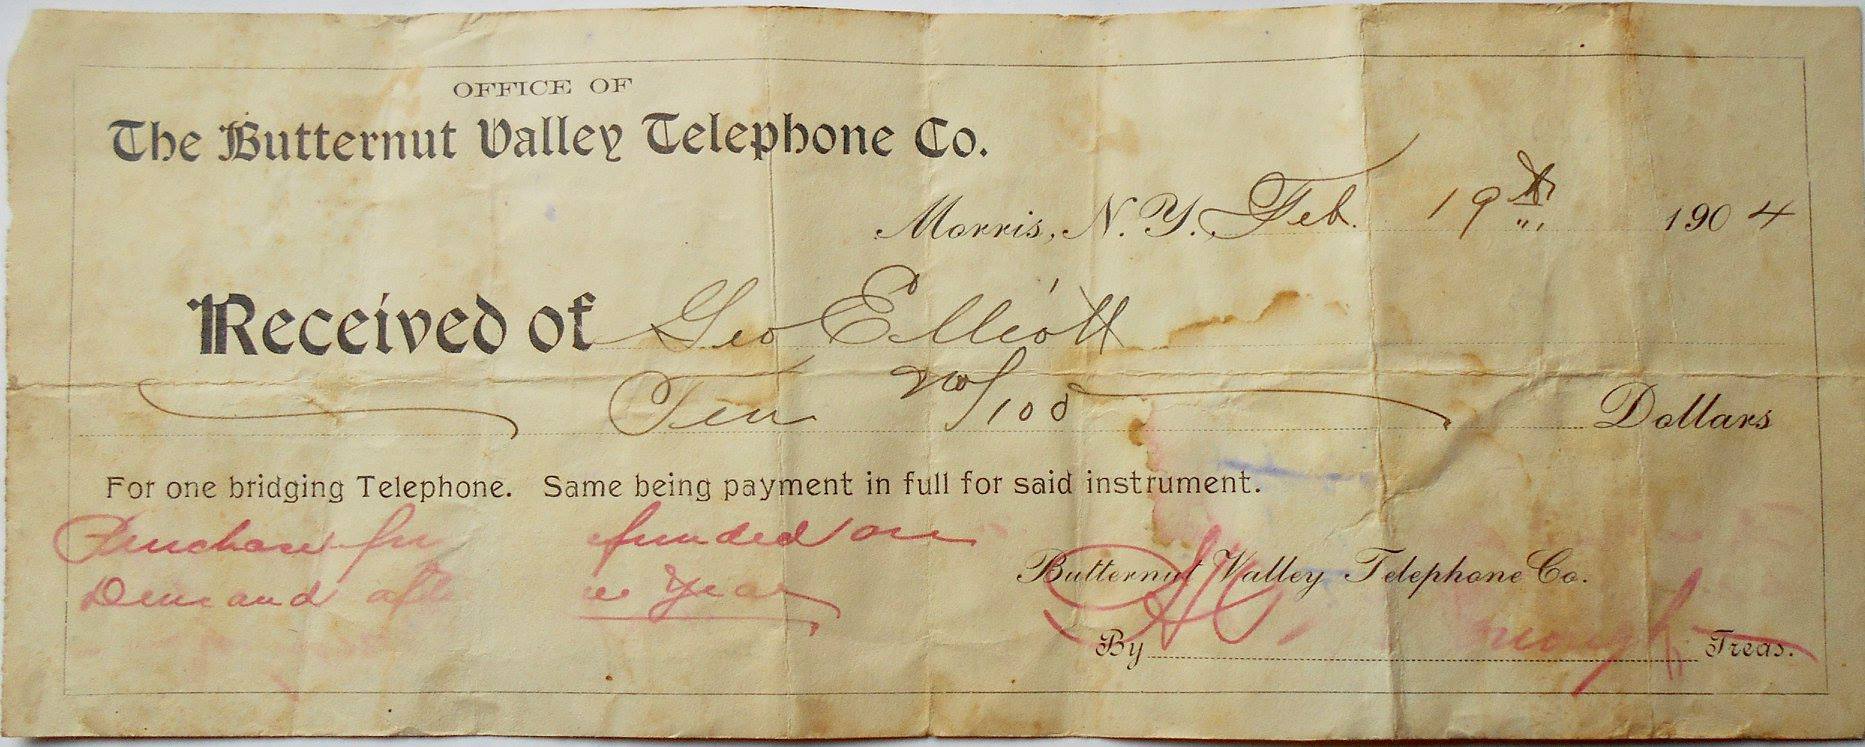 OFFICE OF
The Butternut Valley Telephone Co.
Morris, N. Y., Feb. 19th 1904
Received of Geo Elliott
Ten /100 Dollars
For one bridging Telephone. Same being payment in full for said instrument.
Purchase funded on
Demand Year
Butternut Valley Telephone Co.
By Treas.